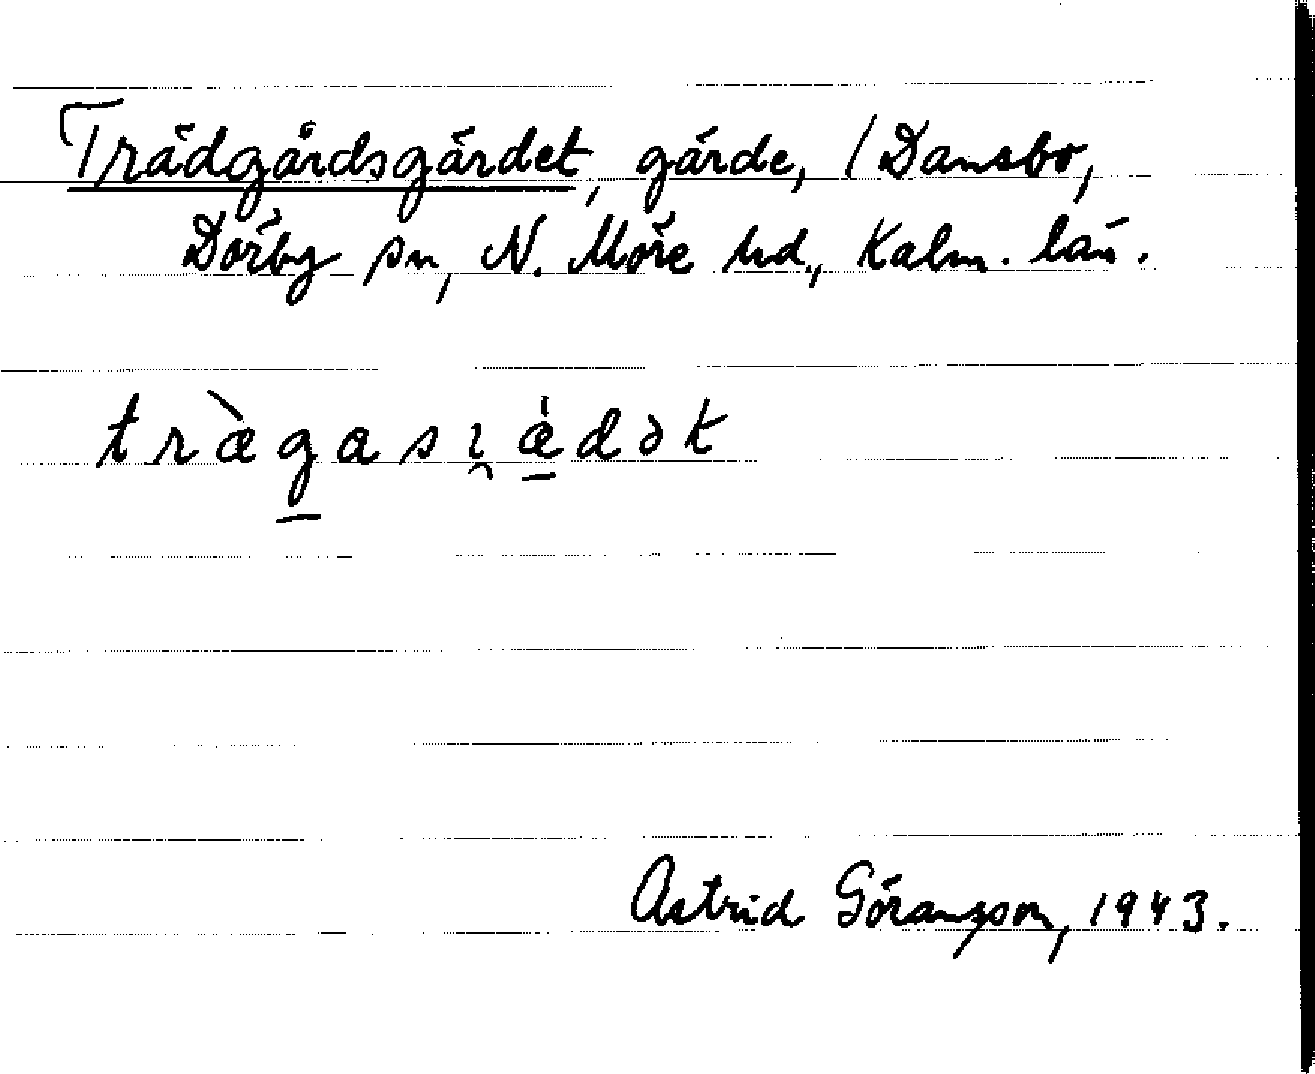 Trädgårdsgärdet, gärde, / Dansbo,
Dörby sn, N. Möre hd., Kalm. län.
træ̀gasi̯æ̍dət
Astrid Göranzon, 1943.